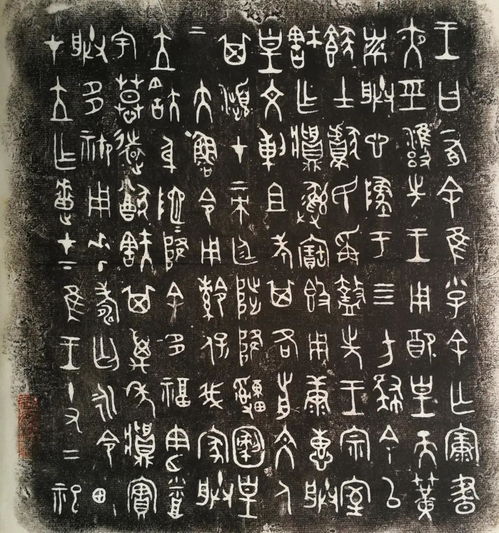 王曰有余隹小子余亡康晝
夜巠雍先王用配皇天簧
黹朕心墜于四方肆余以
士獻民爯盩先王宗室
㝬乍彝寶簋用康惠朕
皇文剌且考其各前文人
其瀕才帝廷陟降皇
帝大魯令用保我家朕
立㝬身阤降余多福憲烝
宇慕遠猷㝬其萬年實
朕多禦用壽匄永令畯
才立乍疐才下隹王十又二祀